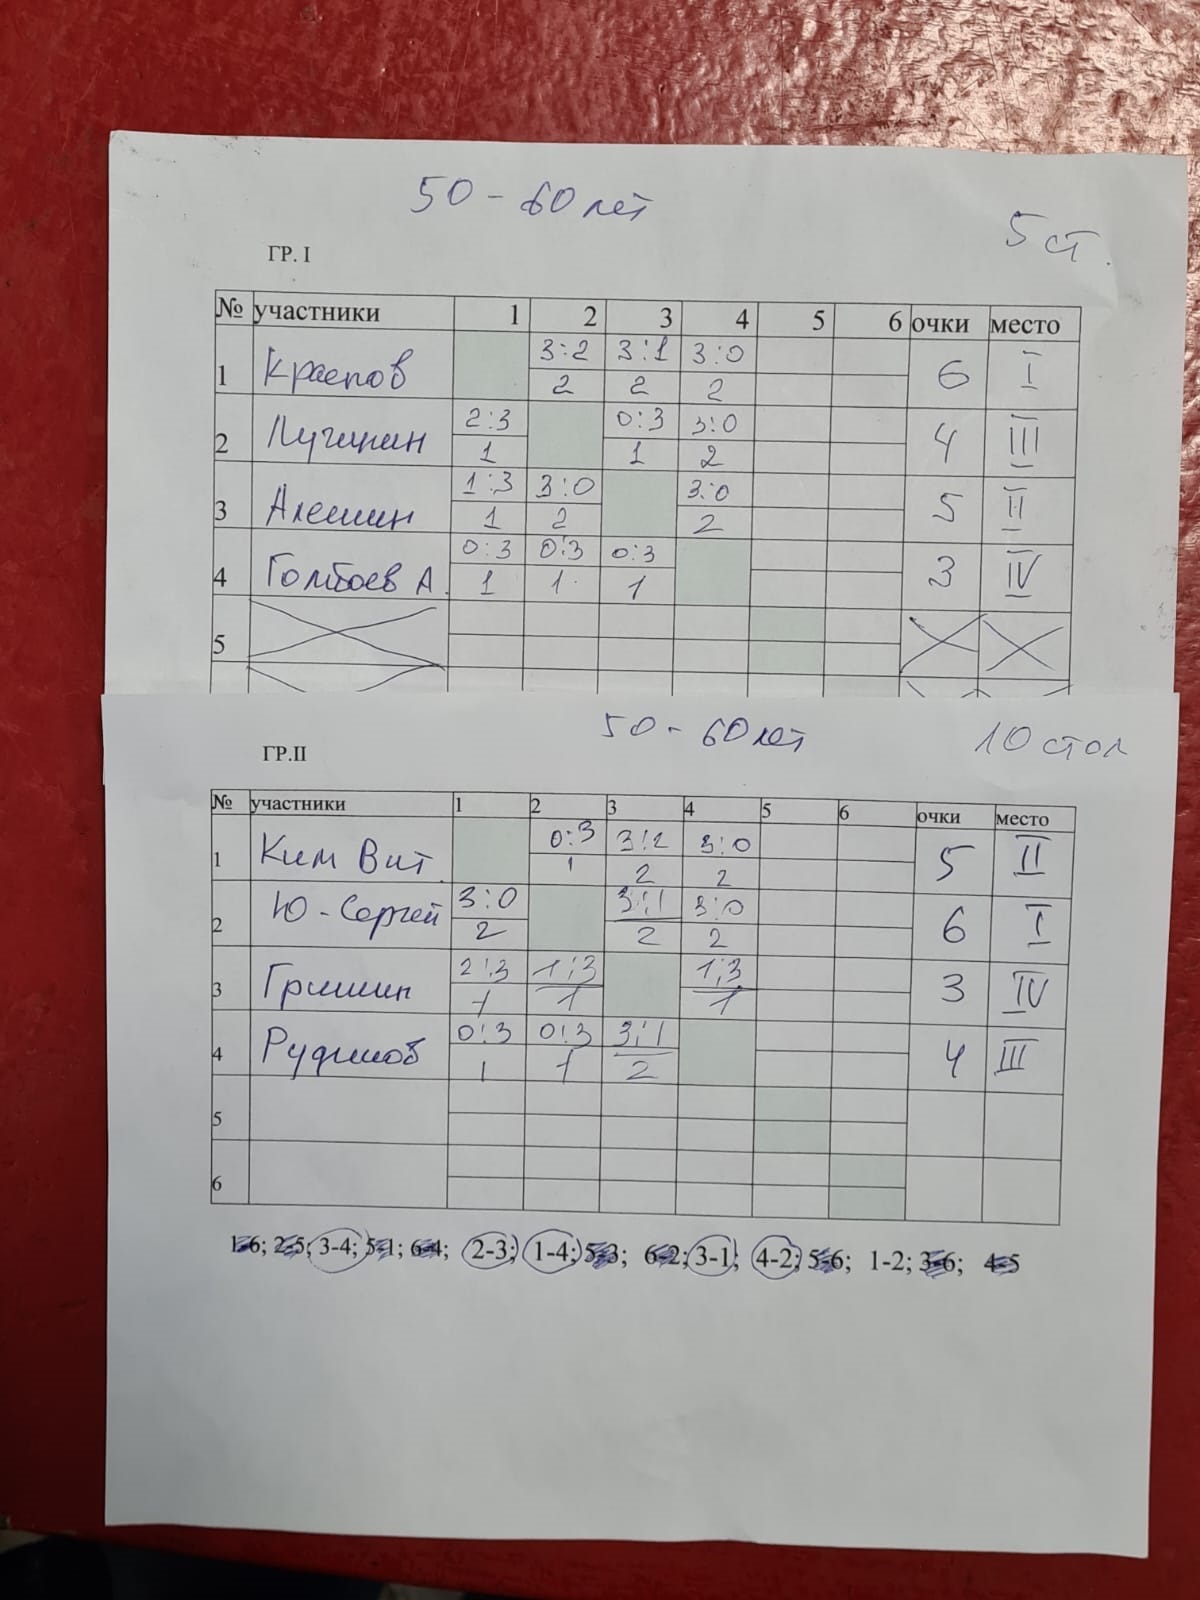 50 - 60 лет
5 ст.
ГР. I
№ участники 1 2 3 4 5 6 очки место
3:2 3:1 3:0
1 Краепов 2 2 2 6 I
2:3 0:3 3:0
2 Лучинин 1 1 2 4 III
1:3 3:0 3:0
3 Алешин 1 2 2 5 II
0:3 0:3 0:3
4 Гомбоев А. 1 1 1 3 IV
5
50 - 60 лет
10 стол
ГР.II
№ участники 1 2 3 4 5 6 очки место
0:3 3:2 3:0
1 Ким Вит. 1 2 2 5 II
3:0 3:1 3:0
2 Ю - Сергей 2 2 2 6 I
2:3 1:3 1:3
3 Гришин 1 1 1 3 IV
0:3 0:3 3:1
4 1 1 2 4 III
5
6
1-6; 2-5; 3-4; 5-1; 6-4; 2-3; 1-4; 5-3; 6-2; 3-1; 4-2; 5-6; 1-2; 3-6; 4-5